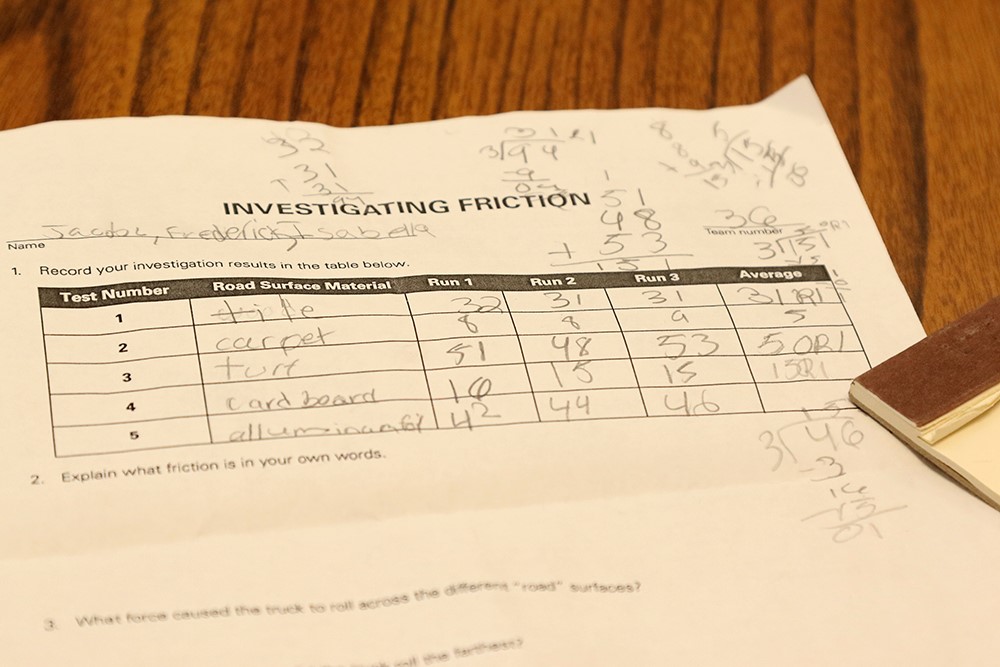 32
31
+ 31
94
31 R1
3)94
-9
04
INVESTIGATING FRICTION
1
51
48
+ 53
151
8
8
Jacob, Frederick, Isabella
Name
36
Team number
3)151
1. Record your investigation results in the table below.
Test Number Road Surface Material Run 1 Run 2 Run 3 Average
1 32 31 31 31R1
2 carpet 8 8 9
3 turf 51 48 53 50R1
4 cardboard 16 15 15 15R1
5 42 44 46
15
3)46
-3
16
-15
01
2. Explain what friction is in your own words.
3. What force caused the truck to roll across the different "road" surfaces?
roll the farthest?